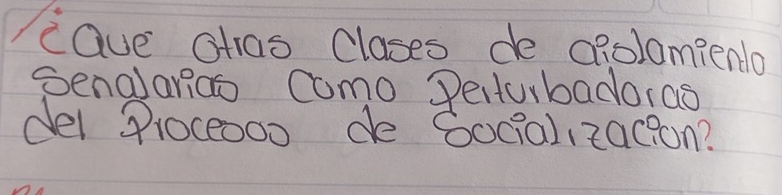 ¿Que otras clases de aislamiento
Senalarias como Perturbadoras
del Procesos de Socialización?